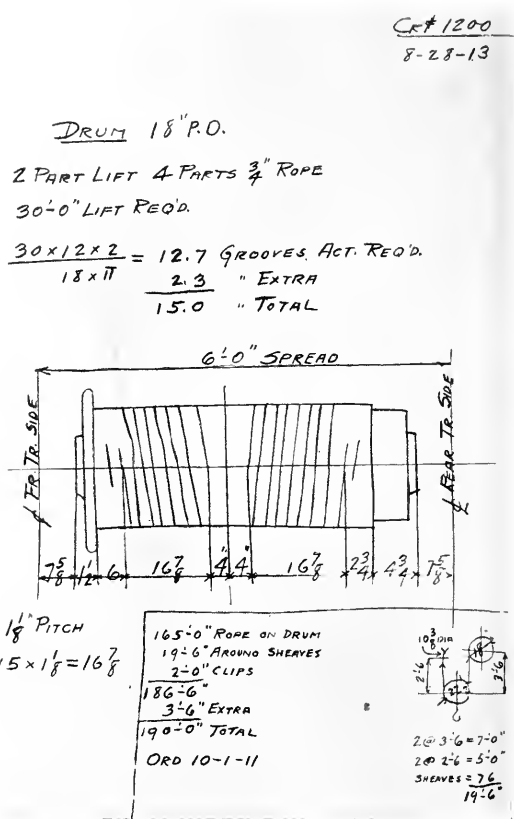 CRF# 1200
8-28-13
DRUM 18" P.D.
2 PART LIFT 4 PARTS 3/4" ROPE
30'-0" LIFT REQ'D.
30 x 12 x 2 / 18 x π = 12.7 GROOVES, ACT. REQ'D.
2.3 " EXTRA
15.0 " TOTAL
6'-0" SPREAD
℄ FR. TR. SIDE
℄ REAR TR. SIDE
7 5/8 1 1/2 6 16 7/8 4" 4" 16 7/8 2 3/4 4 3/4 7 5/8
1 1/8" PITCH
15 x 1 1/8 = 16 7/8
165'-0" ROPE ON DRUM
19'-6" AROUND SHEAVES
2'-0" CLIPS
186'-6"
3'-6" EXTRA
190'-0" TOTAL
ORD 10-1-11
10 3/8 DIA
18
2'-6
3'-6
2 @ 3'-6 = 7'-0"
2 @ 2'-6 = 5'-0"
SHEAVES = 7 6
19'-6"